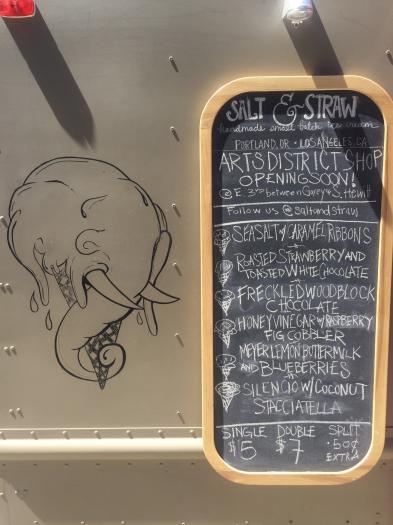 SALT & STRAW
handmade small batch ice cream
PORTLAND, OR • LOS ANGELES, CA
ARTS DISTRICT SHOP
OPENING SOON!
@ E. 3rd between Garey & S. Hewitt
Follow us @saltandstraw
SEA SALT w/ CARAMEL RIBBONS
ROASTED STRAWBERRY AND
TOASTED WHITE CHOCOLATE
FRECKLED WOODBLOCK
CHOCOLATE
HONEY VINEGAR w/ RASPBERRY
FIG COBBLER
MEYER LEMON BUTTERMILK
AND BLUEBERRIES
SILENCIO W/ COCONUT
STACCIATELLA
SINGLE DOUBLE SPLIT
$5 $7 .50¢
EXTRA